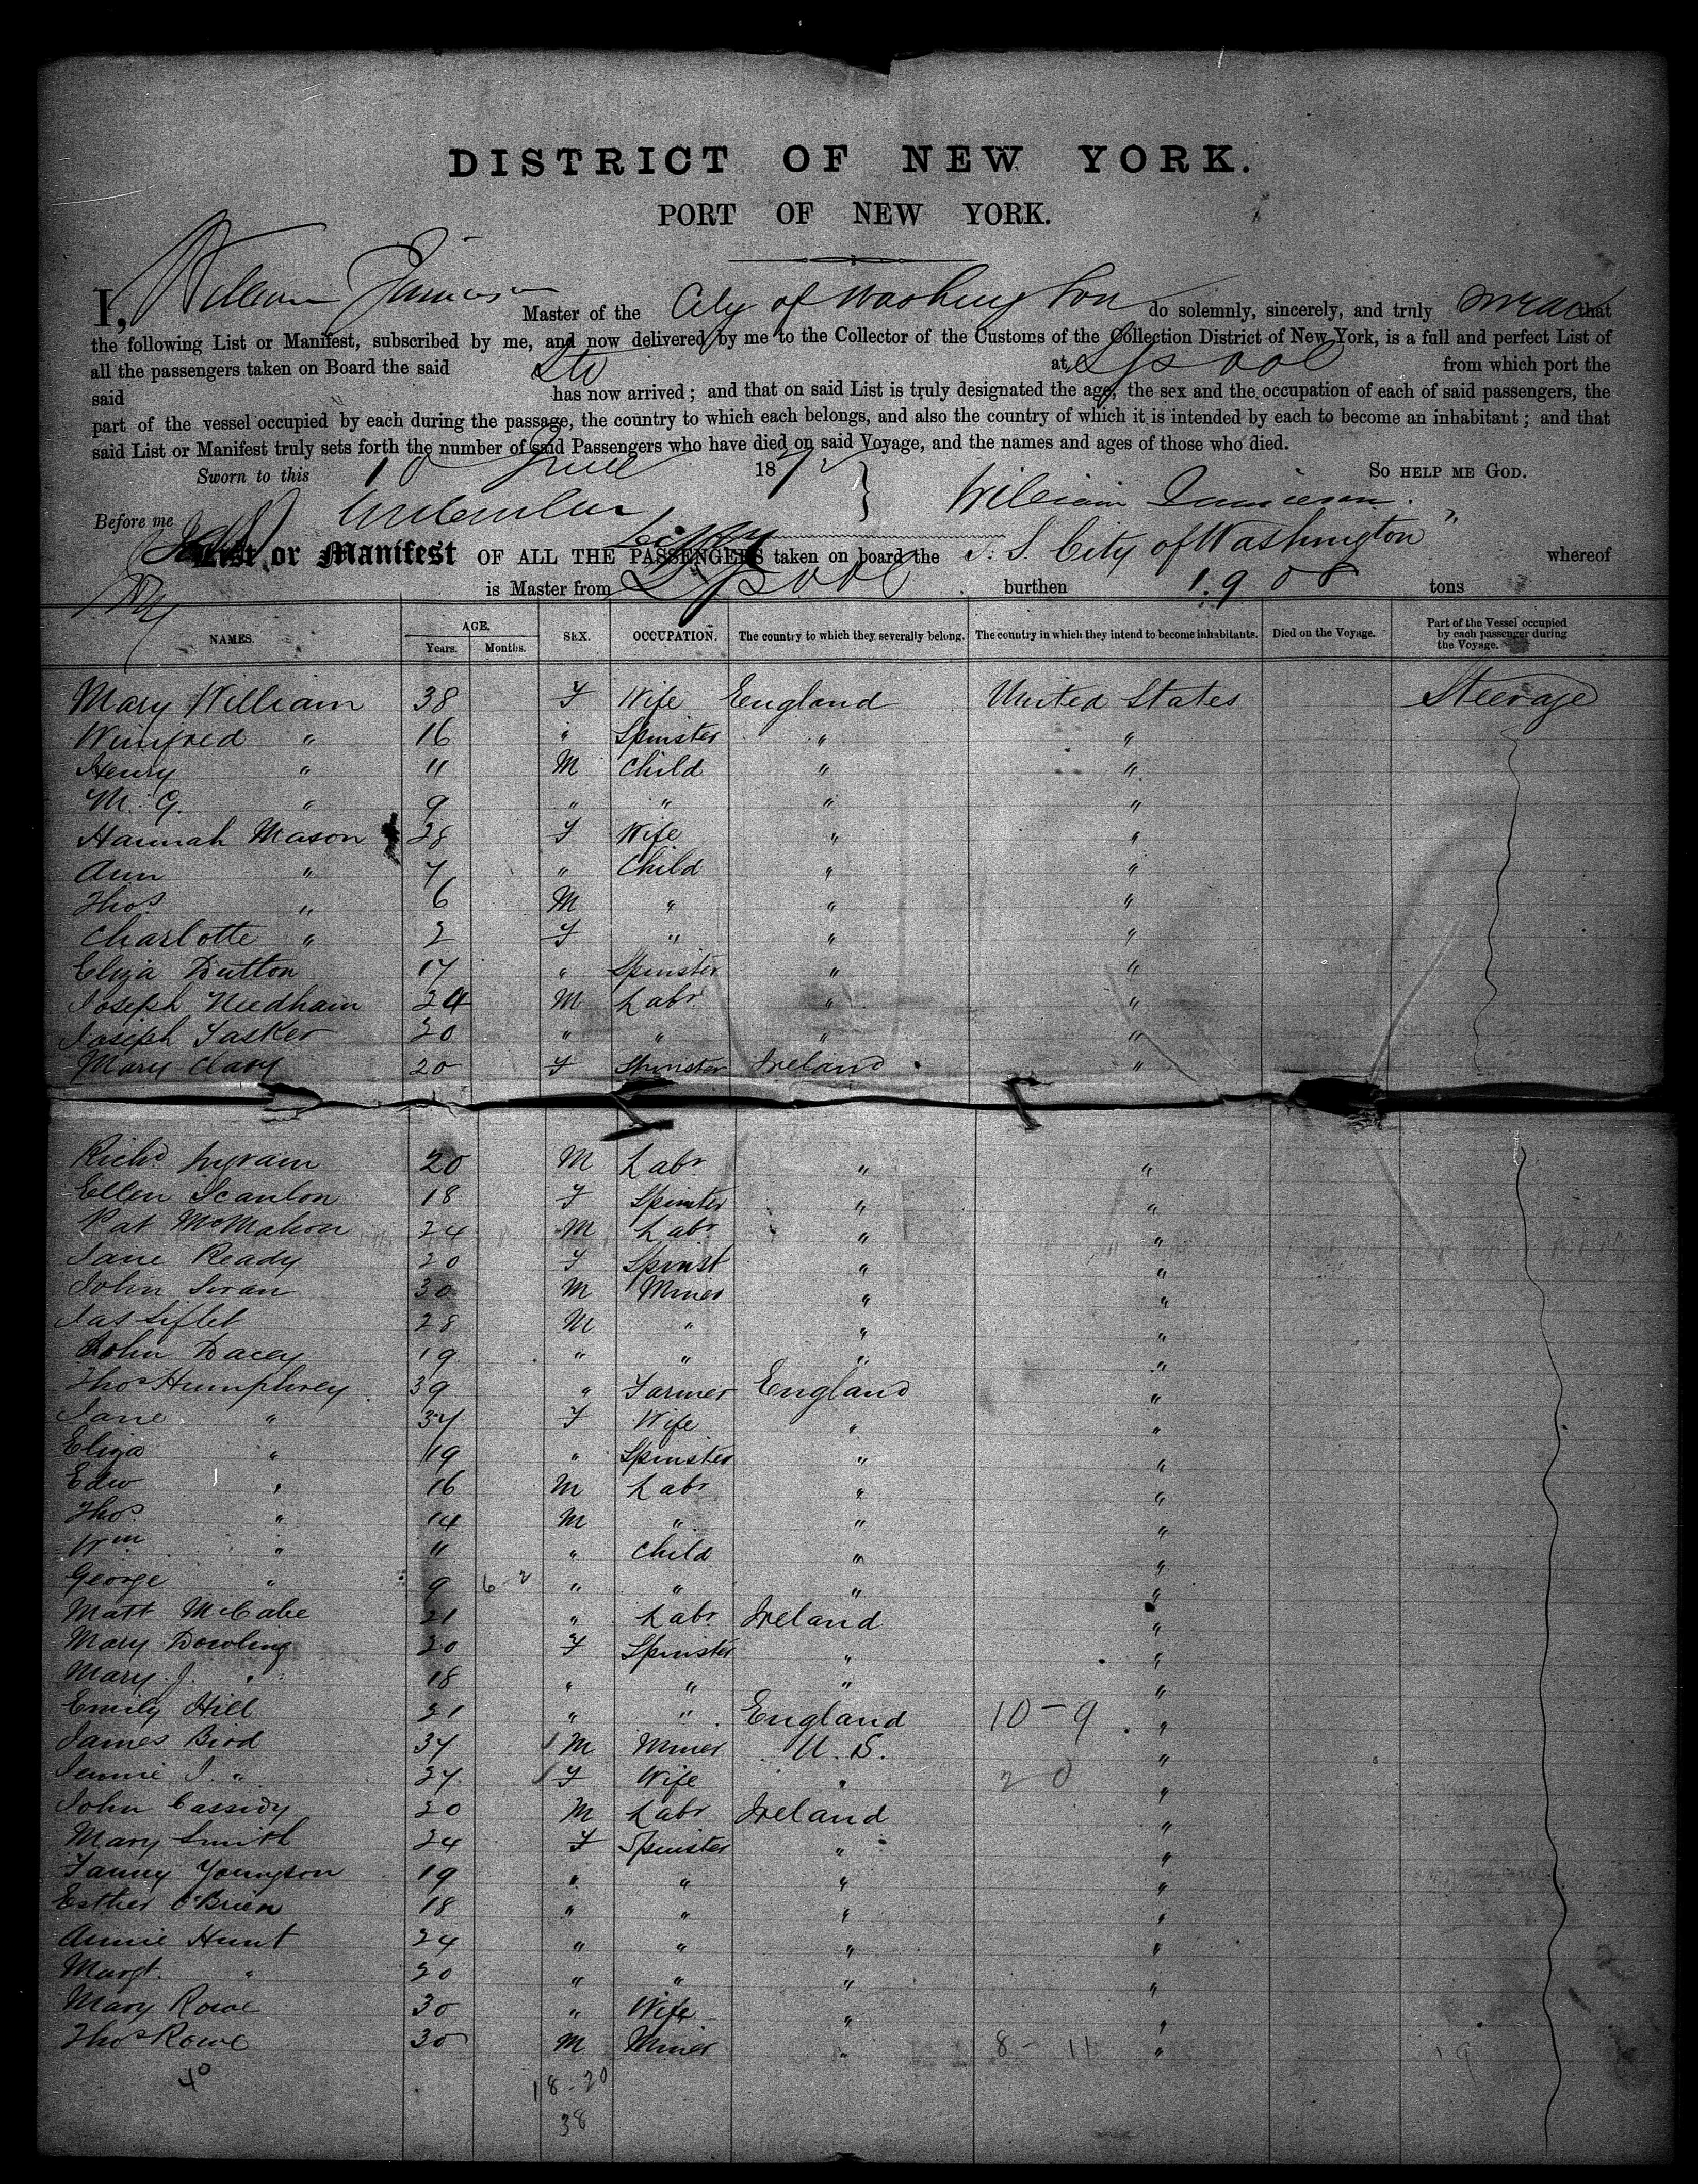 DISTRICT OF NEW YORK.
PORT OF NEW YORK.
I, William Jamieson Master of the City of Washington do solemnly, sincerely, and truly swear that
the following List or Manifest, subscribed by me, and now delivered by me to the Collector of the Customs of the Collection District of New York, is a full and perfect List of
all the passengers taken on Board the said Str at L'pool from which port the
said has now arrived; and that on said List is truly designated the age, the sex and the occupation of each of said passengers, the
part of the vessel occupied by each during the passage, the country to which each belongs, and also the country of which it is intended by each to become an inhabitant; and that
said List or Manifest truly sets forth the number of said Passengers who have died on said Voyage, and the names and ages of those who died.
Sworn to this 10 June 187 So help me God.
Before me William Jamieson.
List or Manifest OF ALL THE PASSENGERS taken on board the S. S. City of Washington" whereof
is Master from L'pool burthen 1.900 tons
NAMES. AGE. Years. Months. SEX. OCCUPATION. The country to which they severally belong. The country in which they intend to become inhabitants. Died on the Voyage. Part of the Vessel occupied by each passenger during the Voyage.
Mary William 38 F Wife England United States Steerage
Winifred " 16 " Spinster " "
Henry " 11 M Child " "
M. G. " 9 " " " "
Hannah Mason 28 F Wife " "
Ann " 7 " Child " "
Thos " 6 M " " "
Charlotte " 2 F " " "
Eliza Dutton 17 " Spinster " "
Joseph Needham 24 M Labr " "
Joseph Tasker 20 " " " "
Mary Clary 20 F Spinster Ireland "
Richd Ingram 20 M Labr " "
Ellen Scanlon 18 F Spinster " "
Pat McMahon 24 M Labr " "
Jane Ready 20 F Spinst " "
John Swan 30 M Miner " "
Jas Liflet 28 M " " "
John Dacey 19 " " " "
Thos Humphrey 39 " Farmer England "
Jane " 37 F Wife " "
Eliza " 19 " Spinster " "
Edw " 16 M Labr " "
Thos. " 14 M " " "
Wm " 11 " Child " "
George " 9 6-2 " " " "
Matt McCabe 21 " Labr Ireland "
Mary Dowling 20 F Spinster " "
Mary J. " 18 " " " "
Emily Hill 21 " " England 10-9 "
James Bird 37 M Miner U.S. "
Jennie J. " 27 F Wife " 20 "
John Cassidy 20 M Labr Ireland "
Mary Smith 24 F Spinster " "
Fanny Youngson 19 " " " "
Esther O'Brien 18 " " " "
Annie Hunt 24 " " " "
Margt. " 20 " " " "
Mary Rowe 30 " Wife " "
Thos Rowe 30 M Miner " 8-11 "
40
18-20
38